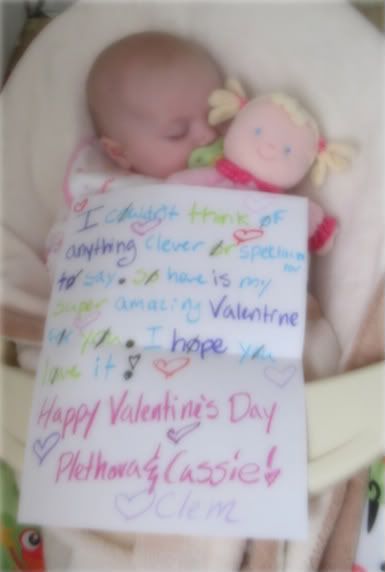 I couldn't think of
anything clever or special
to say. So here is my
super amazing Valentine
for you. I hope you
love it!
Happy Valentine's Day
Plethora & Cassie!
Clem